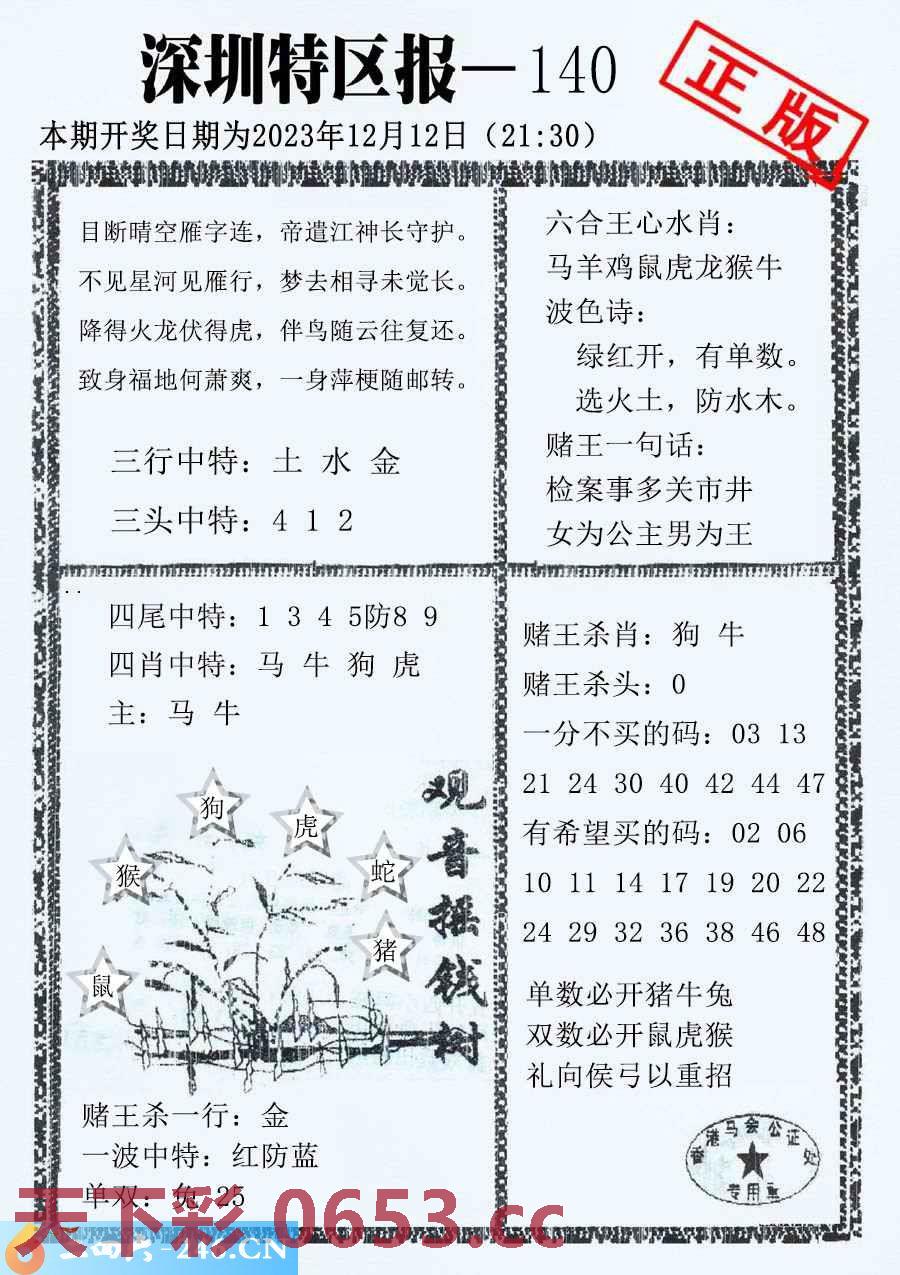 深圳特区报—140
正版
本期开奖日期为2023年12月12日（21:30）
目断晴空雁字连，帝遣江神长守护。
不见星河见雁行，梦去相寻未觉长。
降得火龙伏得虎，伴鸟随云往复还。
致身福地何萧爽，一身萍梗随邮转。
三行中特：土 水 金
三头中特：4 1 2
六合王心水肖：
马羊鸡鼠虎龙猴牛
波色诗：
绿红开，有单数。
选火土，防水木。
赌王一句话：
检案事多关市井
女为公主男为王
四尾中特：1 3 4 5防8 9
四肖中特：马 牛 狗 虎
主：马 牛
狗
虎
猴
蛇
猪
鼠
观音摇钱树
赌王杀一行：金
一波中特：红防蓝
单双：兔 25
赌王杀肖：狗 牛
赌王杀头：0
一分不买的码：03 13
21 24 30 40 42 44 47
有希望买的码：02 06
10 11 14 17 19 20 22
24 29 32 36 38 46 48
单数必开猪牛兔
双数必开鼠虎猴
礼向侯弓以重招
香港马会公证处
专用章
天下彩 0653.cc
-246.CN